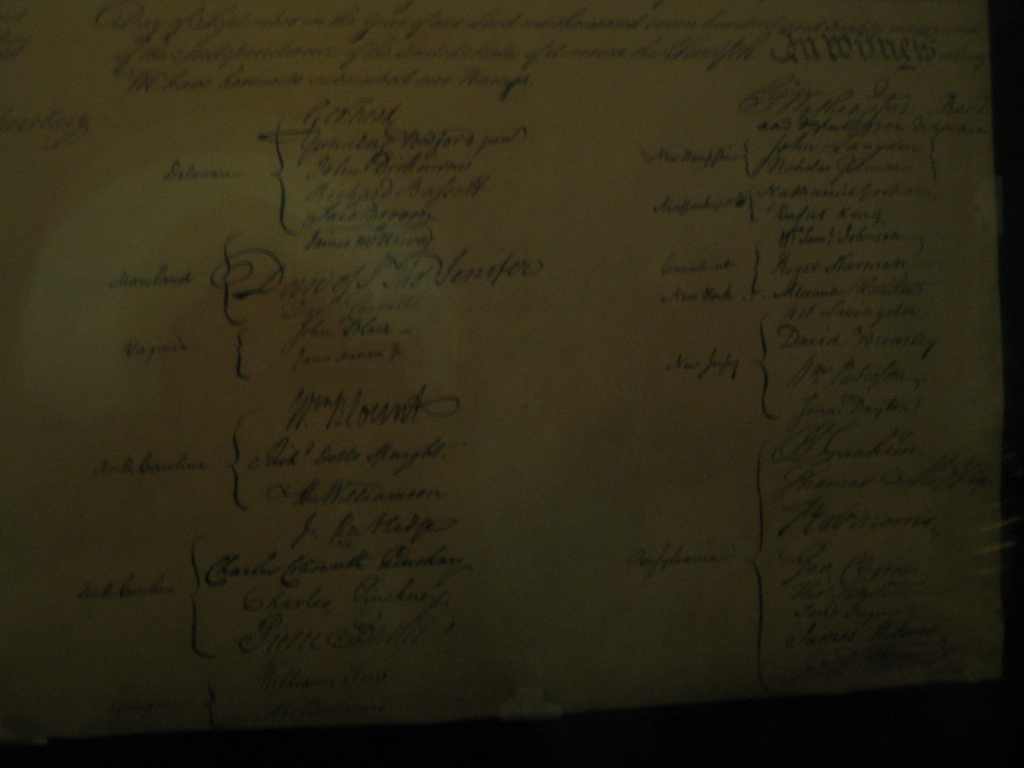 Day of September in the Year of our Lord one thousand seven hundred and
of the Independance of the United States of America the Twelfth In Witness
We have hereunto subscribed our Names,
Delaware
Geo: Read
Gunning Bedford jun
John Dickinson
Richard Bassett
Jaco: Broom
Maryland
James McHenry
Dan of St Thos Jenifer
Danl Carroll
Virginia
John Blair
James Madison Jr
North Carolina
Wm Blount
Richd Dobbs Spaight.
Hu Williamson
South Carolina
J. Rutledge
Charles Cotesworth Pinckney
Charles Pinckney
Pierce Butler
Georgia
William Few
Go: Washington Presidt
and deputy from Virginia
New Hampshire
John Langdon
Nicholas Gilman
Massachusetts
Nathaniel Gorham
Rufus King
Connecticut
Wm Saml Johnson
Roger Sherman
New York
Alexander Hamilton
New Jersey
Wil: Livingston
David Brearley
Wm Paterson
Jona: Dayton
Pensylvania
B Franklin
Thomas Mifflin
Robt Morris
Geo. Clymer
Jared Ingersoll
James Wilson